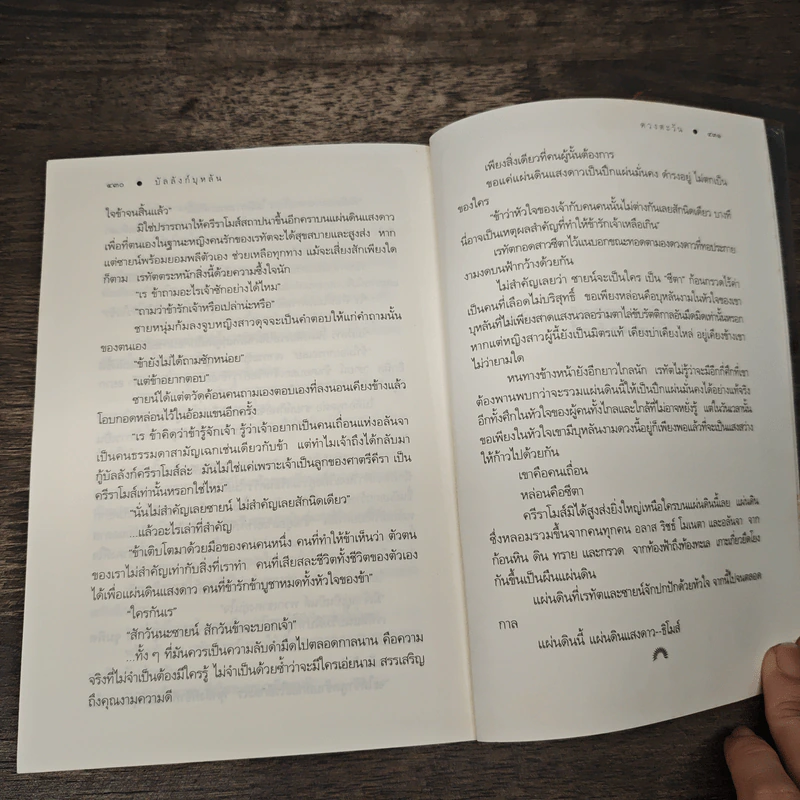 ๔๓๐ ● บัลลังก์บุหลัน
ใจข้าจนสิ้นแล้ว"
มิใช่ปรารถนาให้ครีราโมส์สถาปนาขึ้นอีกคราบนแผ่นดินแสงดาว
เพื่อที่ตนเองในฐานะหญิงคนรักของเรทัตจะได้สุขสบายและสูงส่ง หาก
แต่ซายน์พร้อมยอมพลีตัวเอง ช่วยเหลือทุกทาง แม้จะเสี่ยงสักเพียงใด
ก็ตาม เรทัตตระหนักสิ่งนี้ด้วยความซึ้งใจนัก
"เร ข้าถามอะไรเจ้าซักอย่างได้ไหม"
"ถามว่าข้ารักเจ้าหรือเปล่าน่ะหรือ"
ชายหนุ่มก้มลงจูบหญิงสาวดุจจะเป็นคำตอบให้แก่คำถามนั้น
ของตนเอง
"ข้ายังไม่ได้ถามซักหน่อย"
"แต่ข้าอยากตอบ"
ซายน์ได้แต่ตวัดค้อนคนถามเองตอบเองที่ลงนอนเคียงข้างแล้ว
โอบกอดหล่อนไว้ในอ้อมแขนอีกครั้ง
"เร ข้าคิดว่าข้ารู้จักเจ้า รู้ว่าเจ้าอยากเป็นคนเถื่อนแห่งอลันจา
เป็นคนธรรมดาสามัญเฉกเช่นเดียวกับข้า แต่ทำไมเจ้าถึงได้กลับมา
กู้บัลลังก์ครีราโมส์ล่ะ มันไม่ใช่แค่เพราะเจ้าเป็นลูกของศาตรีคีรา เป็น
ครีราโมส์เท่านั้นหรอกใช่ไหม"
"นั่นไม่สำคัญเลยซายน์ ไม่สำคัญเลยสักนิดเดียว"
...แล้วอะไรเล่าที่สำคัญ
"ข้าเติบโตมาด้วยมือของคนคนหนึ่ง คนที่ทำให้ข้าเห็นว่า ตัวตน
ของเราไม่สำคัญเท่ากับสิ่งที่เราทำ คนที่เสียสละชีวิตทั้งชีวิตของตัวเอง
ได้เพื่อแผ่นดินแสงดาว คนที่ข้ารักข้าบูชาหมดทั้งหัวใจของข้า"
"ใครกันเร"
"สักวันนะซายน์ สักวันข้าจะบอกเจ้า"
...ทั้ง ๆ ที่มันควรเป็นความลับดำมืดไปตลอดกาลนาน คือความ
จริงที่ไม่จำเป็นต้องมีใครรู้ ไม่จำเป็นด้วยซ้ำว่าจะมีใครเอ่ยนาม สรรเสริญ
ถึงคุณงามความดี
ดวงตะวัน ● ๔๓๑
เพียงสิ่งเดียวที่คนผู้นั้นต้องการ
ขอแค่แผ่นดินแสงดาวเป็นปึกแผ่นมั่นคง ดำรงอยู่ ไม่ตกเป็น
ของใคร
"ข้าว่าหัวใจของเจ้ากับคนคนนั้นไม่ต่างกันเลยสักนิดเดียว บางที
นี่อาจเป็นเหตุผลสำคัญที่ทำให้ข้ารักเจ้าเหลือเกิน"
เรทัตกอดสาวซีตาไว้แนบอกขณะทอดตามองดวงดาวที่ทอประกาย
งามงดบนฟ้ากว้างด้วยกัน
ไม่สำคัญเลยว่า ซายน์จะเป็นใคร เป็น "ซีตา" ก้อนกรวดไร้ค่า
เป็นคนที่เลือดไม่บริสุทธิ์ ขอเพียงหล่อนคือบุหลันงามในหัวใจของเขา
บุหลันที่ไม่เพียงสาดแสงนวลอร่ามตาไล่ขับรัตติกาลอันมืดมิดเท่านั้นหรอก
หากแต่หญิงสาวผู้นี้ยังเป็นมิตรแท้ เคียงบ่าเคียงไหล่ อยู่เคียงข้างเขา
ไม่ว่ายามใด
หนทางข้างหน้ายังอีกยาวไกลนัก เรทัตไม่รู้ว่าจะมีอีกกี่ศึกที่เขา
ต้องพานพบกว่าจะรวมแผ่นดินนี้ให้เป็นปึกแผ่นมั่นคงได้อย่างแท้จริง
อีกทั้งศึกในหัวใจของผู้คนทั้งไกลและใกล้ที่ไม่อาจหยั่งรู้ แต่ในวันเวลานั้น
ขอเพียงในหัวใจเขามีบุหลันงามดวงนี้อยู่ก็เพียงพอแล้วที่จะเป็นแสงสว่าง
ให้ก้าวไปด้วยกัน
เขาคือคนเถื่อน
หล่อนคือซีตา
ครีราโมส์มิได้สูงส่งยิ่งใหญ่เหนือใครบนแผ่นดินนี้เลย แผ่นดิน
ซึ่งหลอมรวมขึ้นจากคนทุกคน อลาส ริชย์ โมเนตา และอลันจา จาก
ก้อนหิน ดิน ทราย และกรวด จากท้องฟ้าถึงท้องทะเล เกาะเกี่ยวยึดโยง
กันขึ้นเป็นผืนแผ่นดิน
แผ่นดินที่เรทัตและซายน์จักปกปักด้วยหัวใจ จากนี้ไปจนตลอด
กาล
แผ่นดินนี้ แผ่นดินแสงดาว-ชิโมส์